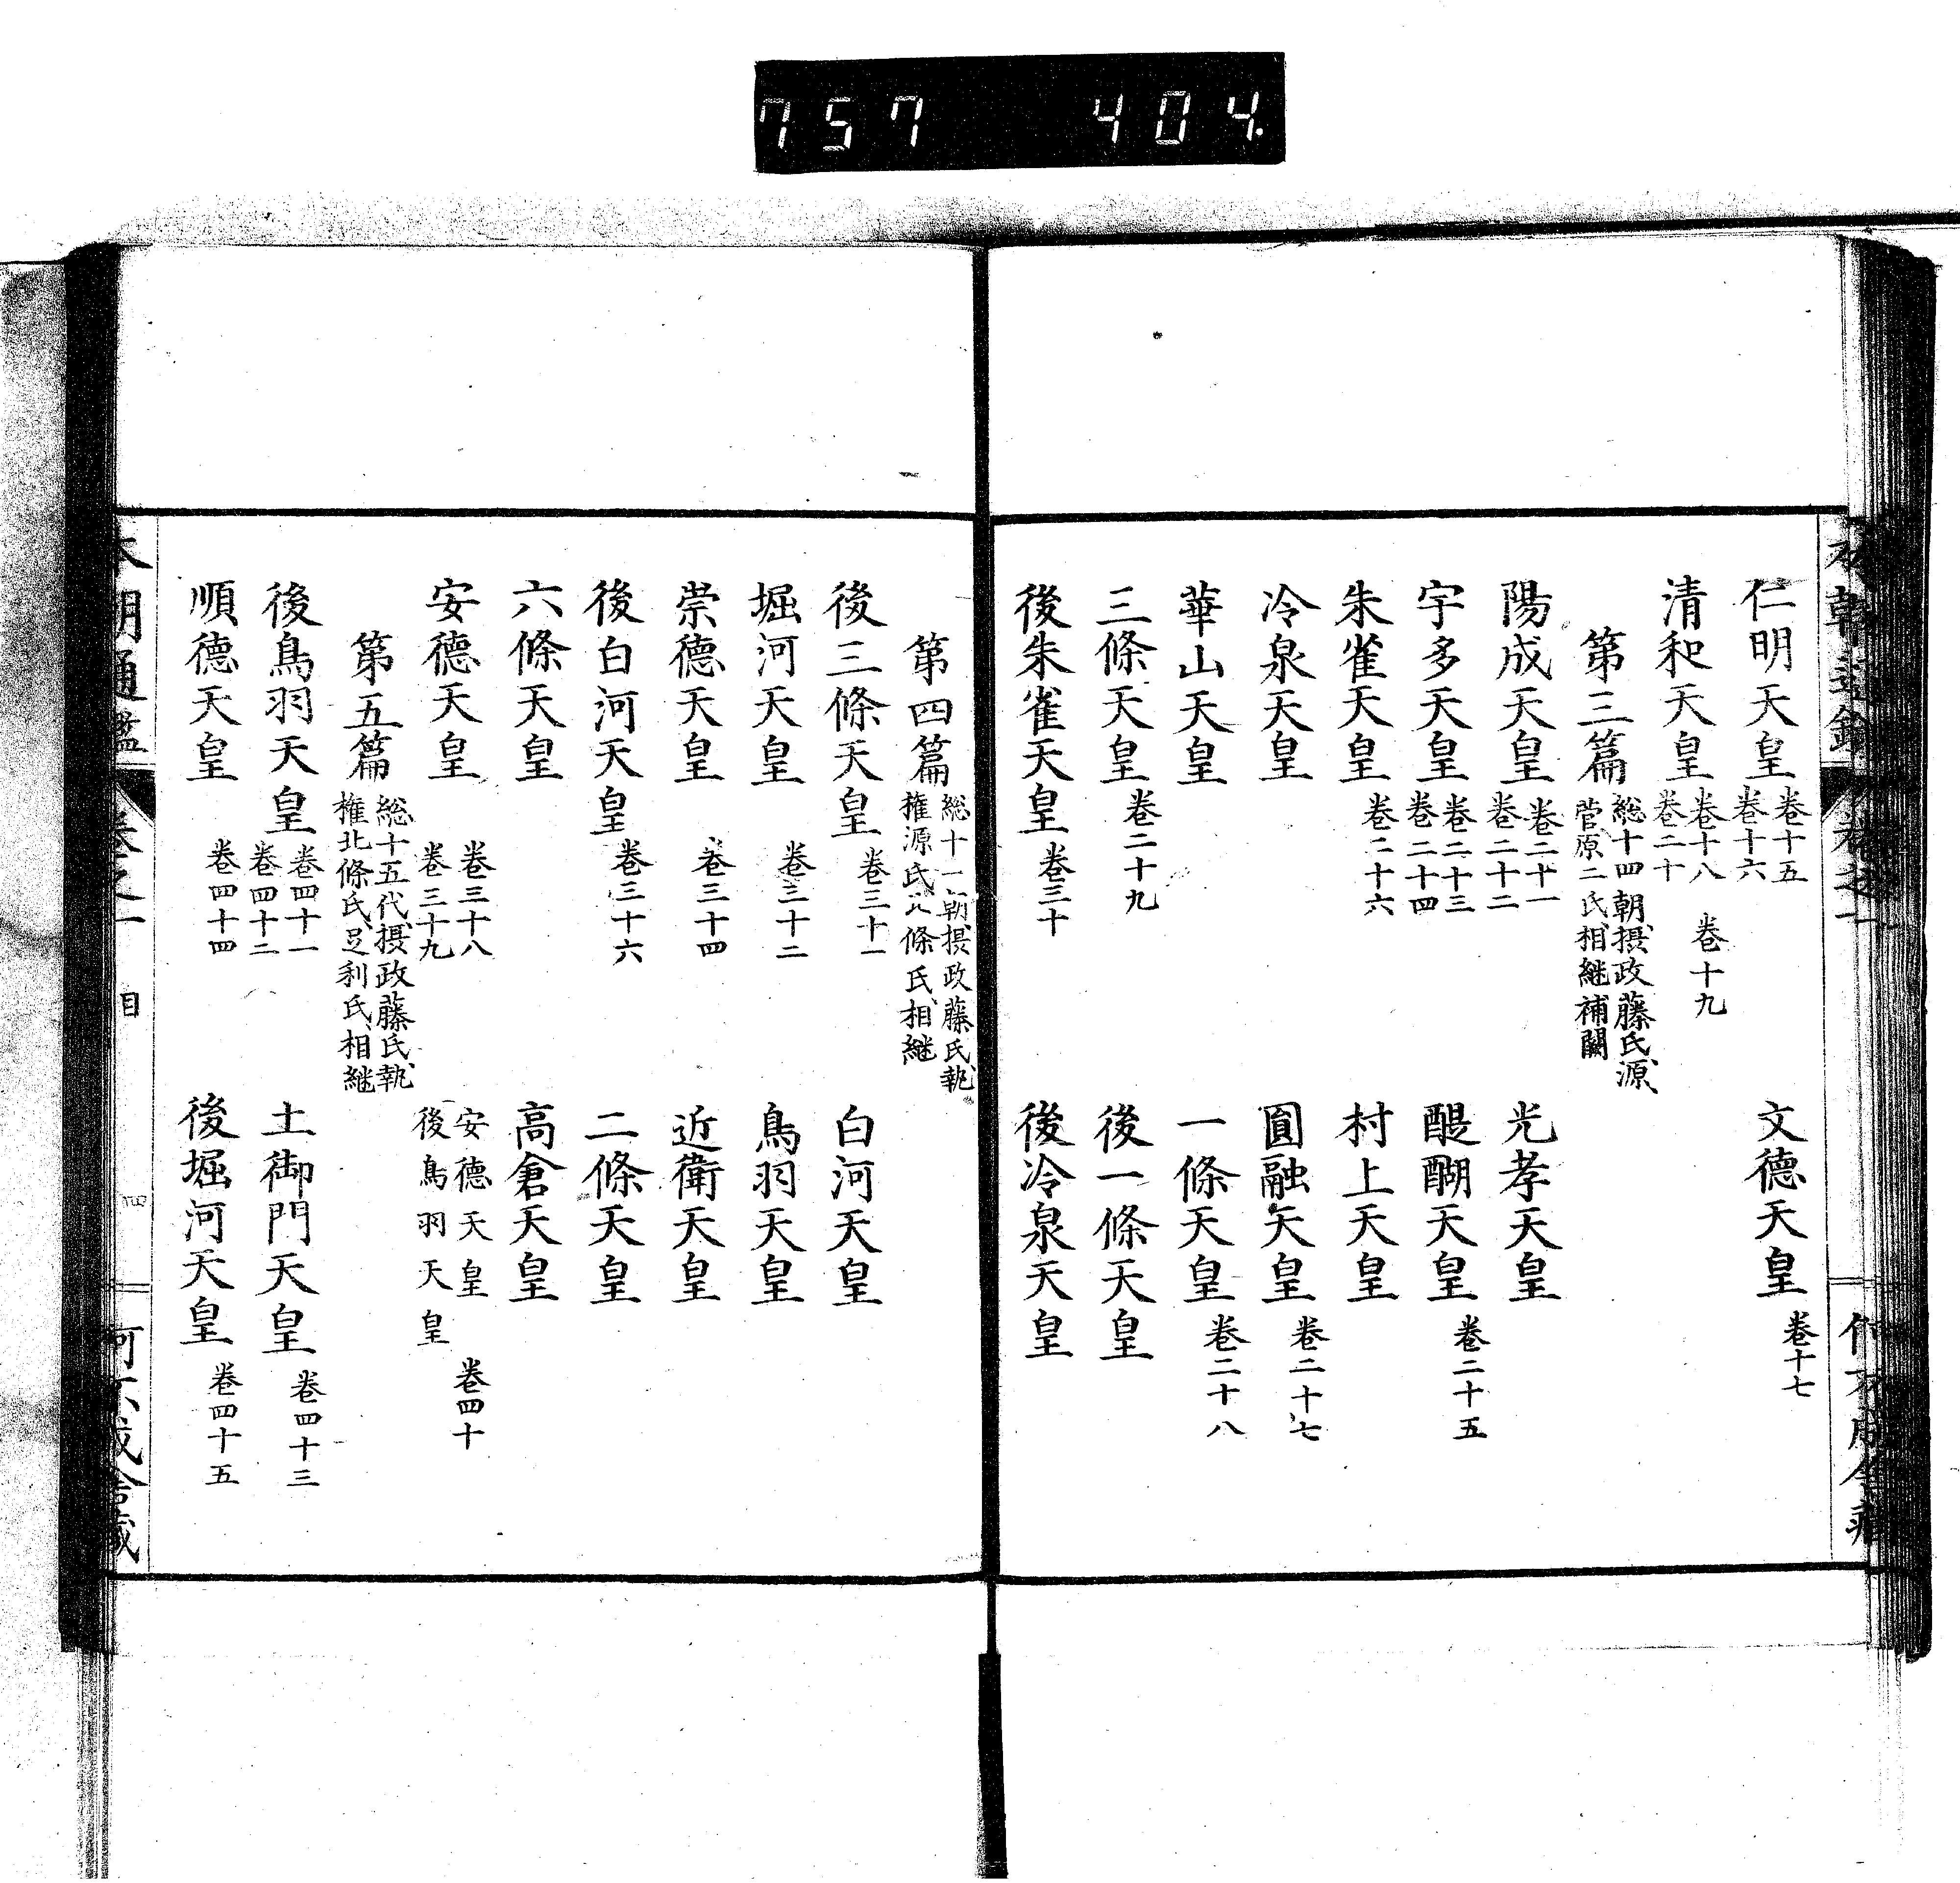 757 404.
仁明天皇 卷十五 卷十六
文德天皇 卷十七
清和天皇 卷十八 卷十九 卷二十
第三篇 総十四朝、摂政藤氏、源、菅原二氏、相継補闕
陽成天皇 卷二十一 卷二十二
光孝天皇
宇多天皇 卷二十三 卷二十四
醍醐天皇 卷二十五
朱雀天皇 卷二十六
村上天皇
冷泉天皇
圓融天皇 卷二十七
華山天皇
一條天皇 卷二十八
三條天皇 卷二十九
後一條天皇
後朱雀天皇 卷三十
後冷泉天皇
第四篇 総十一朝、摂政藤氏、執権源氏、北條氏、相継
後三條天皇 卷三十一
白河天皇
堀河天皇 卷三十二
鳥羽天皇
崇德天皇 卷三十四
近衛天皇
後白河天皇 卷三十六
二條天皇
六條天皇
高倉天皇
安德天皇 卷三十八 卷三十九
安德天皇 後鳥羽天皇 卷四十
第五篇 総十五代、摂政藤氏、執権北條氏、足利氏、相継
後鳥羽天皇 卷四十一 卷四十二
土御門天皇 卷四十三
順德天皇 卷四十四
後堀河天皇 卷四十五
本朝通鑑 卷之一 目 四